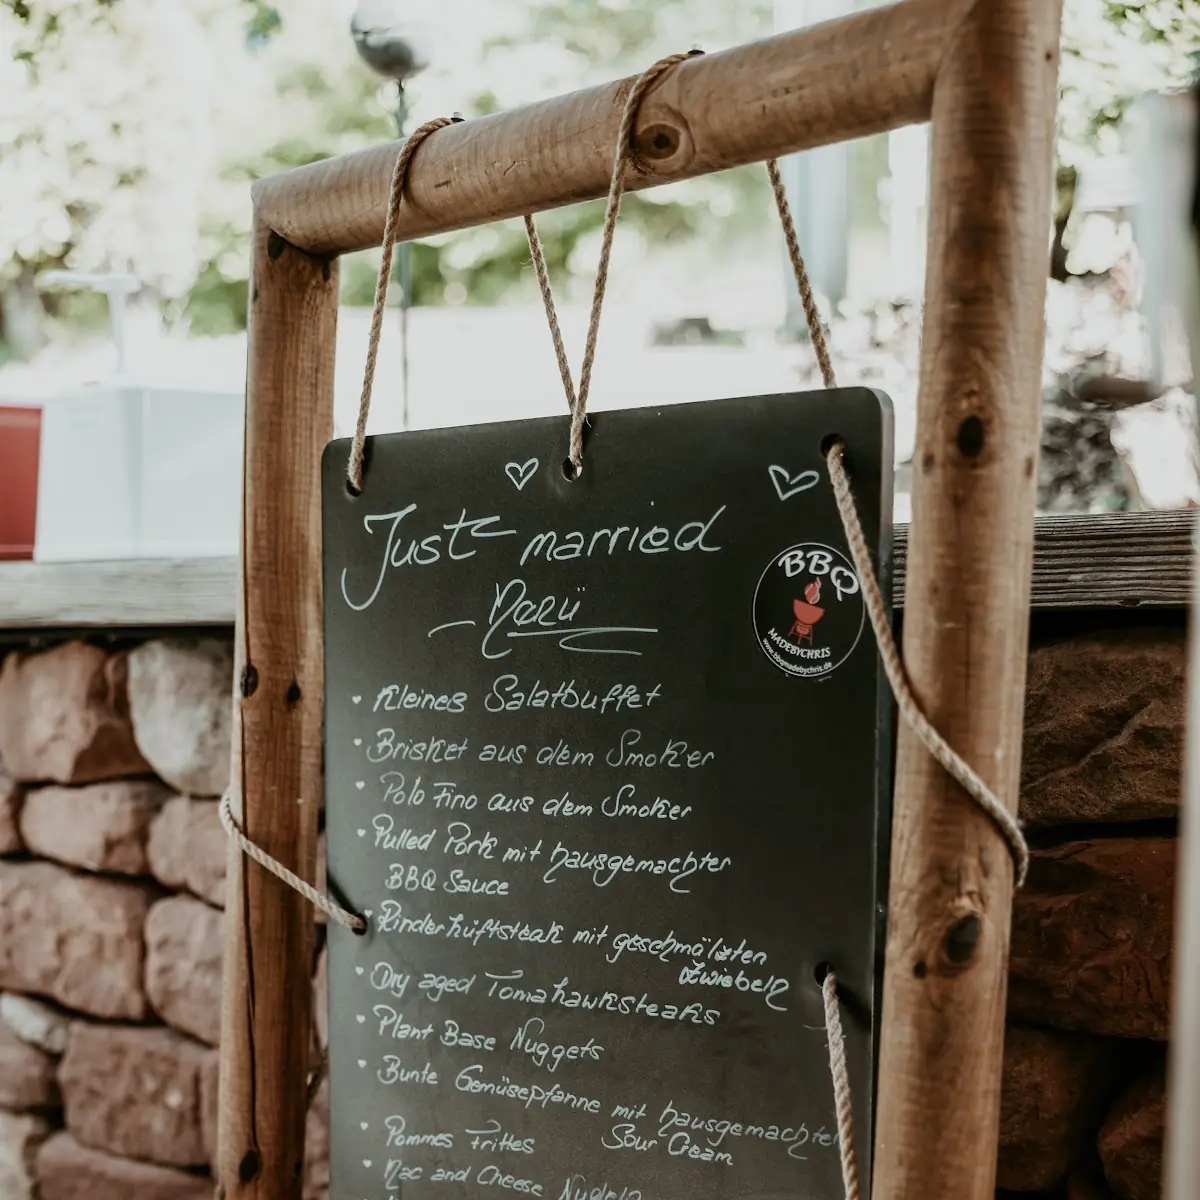 Just married
Menü
BBQ
MADEBYCHRIS
www.bbqmadebychris.de
Kleines Salatbuffet
Brisket aus dem Smoker
Polo Fino aus dem Smoker
Pulled Pork mit hausgemachter
BBQ Sauce
Rinderhüftsteak mit geschmälzten
Zwiebeln
Dry aged Tomahawksteaks
Plant Base Nuggets
Bunte Gemüsepfanne mit hausgemachter
Sour Cream
Pommes Frittes
Mac and Cheese Nudeln